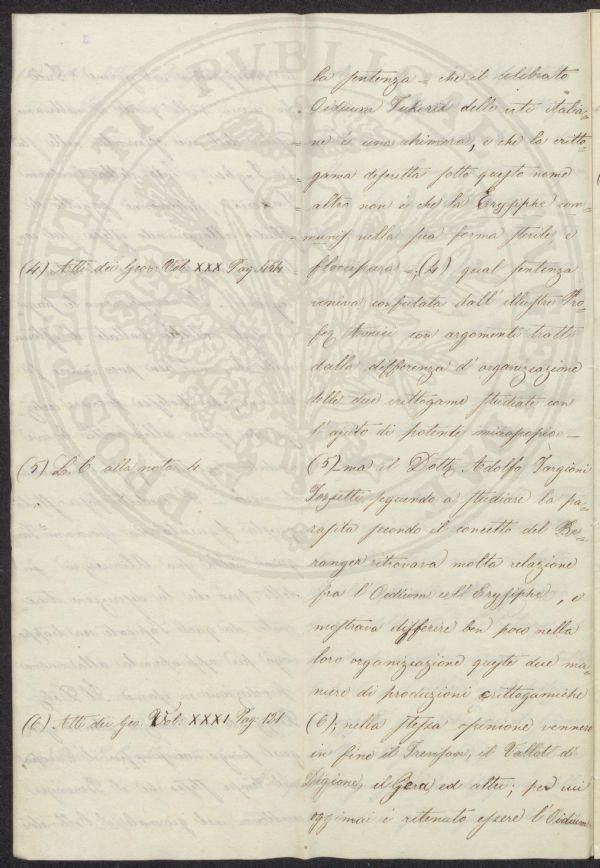 la sentenza = che il celebrato
= Oidium Tukerii delle uve italia-
= ne è una chimera, e che la critto-
= gama descritta sotto questo nome
= altro non è che la Erysiphe com-
= munis nella sua forma sterile e
(4) Atti dei Geor. Vol. XXX Pag. 484
= floccipara = ; (4) qual sentenza
veniva confutata dall' illustre Pro-
fes. Amici con argomenti tratti
dalla differenza d' organizzazione
delle due crittogame studiate con
l' ajuto di potente microscopio —
(5) L. C. alla nota 4.
(5) ma il Dott. Adolfo Targioni
Tozzetti seguendo a studiare la pa-
rasita secondo il concetto del Be-
ranger ritrovava molta relazione
fra l' Oidium ell' Erysiphe, e
mostrava differire ben poco nella
loro organizzazione queste due ma-
niere di produzioni crittogamiche
(6) Atti dei Geo. Vol. XXXI Pag. 131
(6); nella stessa opinione vennero
in fine il Trevisan, il Vallot di
Digione, il Gera ed altri; per cui
oggimai è ritenuto essere l' Oidium
PROSPERITATI PVBLICAE